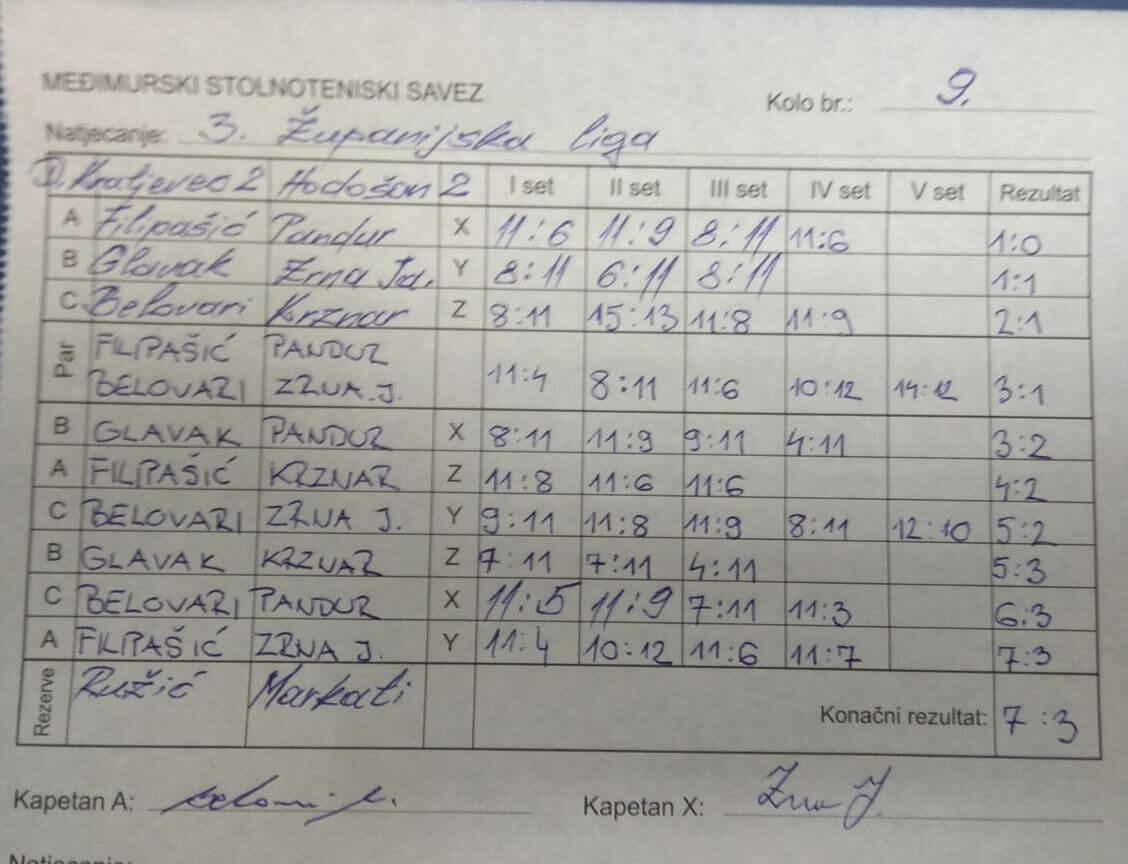 MEĐIMURSKI STOLNOTENISKI SAVEZ
Kolo br.: 9.
Natjecanje: 3. Županijska liga
D. Kraljevec 2 Hodošan 2 I set II set III set IV set V set Rezultat
A Filipašić Pandur X 11:6 11:9 8:11 11:6 1:0
B Glavak Zrna Ja. Y 8:11 6:11 8:11 1:1
C Belovari Krznar Z 8:11 15:13 11:8 11:9 2:1
Par FILIPAŠIĆ PANDUR
BELOVARI ZRNA J. 11:4 8:11 11:6 10:12 14:12 3:1
B GLAVAK PANDUR X 8:11 11:9 9:11 4:11 3:2
A FILIPAŠIĆ KRZNAR Z 11:8 11:6 11:6 4:2
C BELOVARI ZRNA J. Y 9:11 11:8 11:9 8:11 12:10 5:2
B GLAVAK KRZNAR Z 7:11 7:11 4:11 5:3
C BELOVARI PANDUR X 11:5 11:9 7:11 11:3 6:3
A FILIPAŠIĆ ZRNA J. Y 11:4 10:12 11:6 11:7 7:3
Rezerve Ružić Markati
Konačni rezultat: 7:3
Kapetan A: Kapetan X: Zrna J.
Natjecanje: